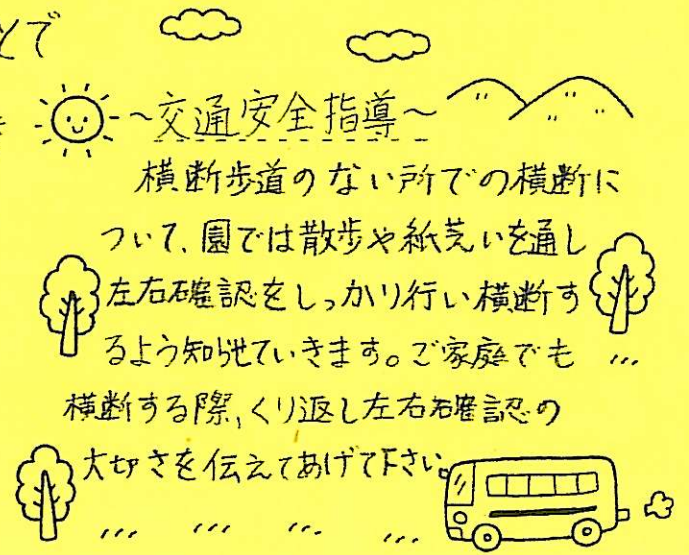 とで
～交通安全指導～
横断歩道のない所での横断に
ついて、園では散歩や紙芝いを通し
左右確認をしっかり行い横断す
るよう知らせていきます。ご家庭でも
横断する際、くり返し左右確認の
大切さを伝えてあげて下さい